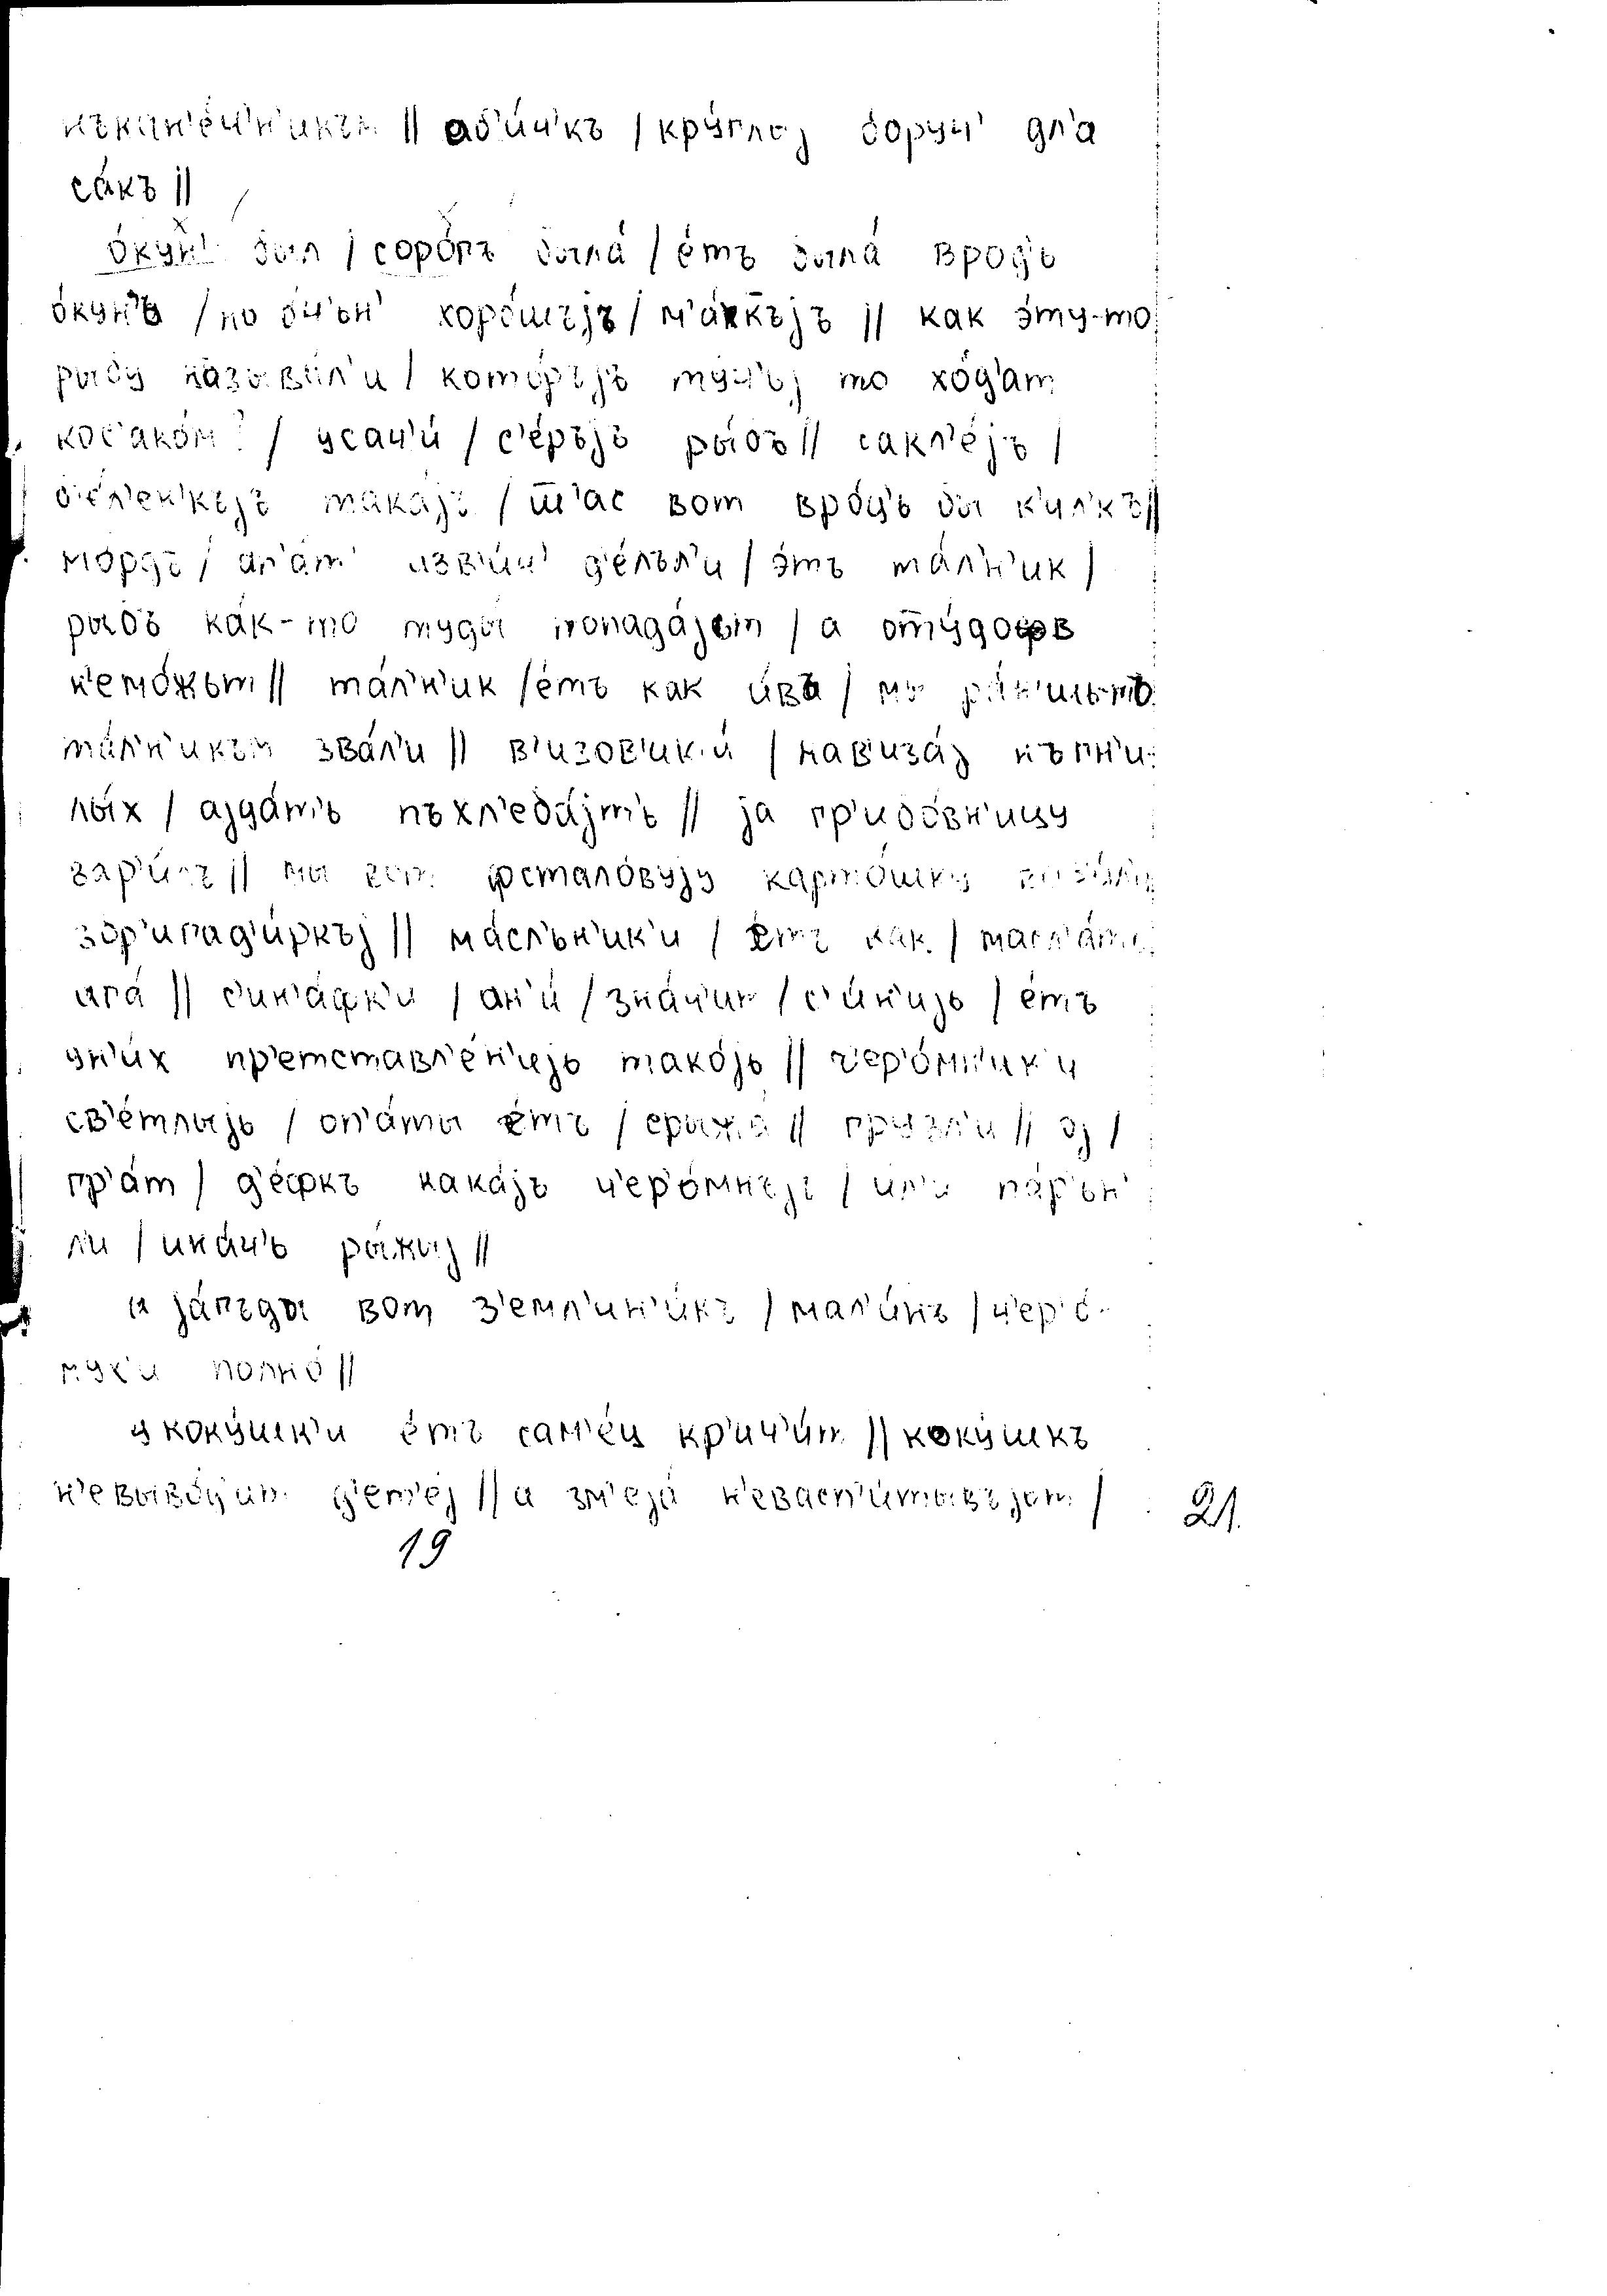 нъкан'е́ч'н'икъм || аб'и́ч'къ / кру́глој боруч' дл'а
са́къ ||
о́кун' был / соро́гъ была́ / е́тъ была́ врод'ь
о́кун'ъ / но о́ч'ьн' хоро́шъјъ / м'а́хк̄ъјъ || как э́ту-то
рыбу называ́л'и / кото́ръјъ ту́ч'ьј то хо́д'ат
кос'ако́м? / усач'и́ / с'е́ръјъ ры́бъ || сакл'е́јъ /
б'е́л'ен'къјъ така́јъ / ш̄'ас вот вро́д'ь бы к'ил'къ ||
мо́рдъ / ап'а́т' изв'и́ч' д'е́лъл'и / э́тъ та́л'н'ик /
рыбъ ка́к-то туды́ попада́јьт / а от̄у́дова
н'емо́жът || та́л'н'ик / е́тъ как и́ва / мы ра́н'шь-то
та́л'н'икъм зва́л'и || в'изов'ик'и́ / нав'иза́ј къгн'и-
лы́х / ајда́т'ь пъхл'еба́јт'ь || ја гр'ибо́вн'ицу
вар'и́лъ || мы фстало́вују карто́шку
збр'игад'и́ркъј || ма́сл'ьн'ик'и / е́тъ как / масл'а́тъ
ига́ || с'ин'а́фк'и / ан'и́ / зна́ч'ит / с'и́н'ијь / е́тъ
ун'и́х пр'етставл'е́н'ијь тако́јь || ч'ер'о́мн'ик'и
св'е́тлыјь / оп'а́ты е́тъ / ерыжа́ || грузл'и || ој /
гр'а́т / д'е́фкъ кака́јъ ч'ер'о́мнъјъ / ил'и па́р'ьн'
л'и / ина́ч'ь ры́жыј ||
и ја́гъды вот з'емл'ин'и́къ / мал'и́нъ / ч'ер'о́-
мух'и полно́ ||
у коку́шк'и е́тъ сам'е́ц кр'ич'и́т || коку́шкъ
н'евыво́д'ит д'ет'е́ј || и зм'еја́ н'евасп'и́тывъјьт /
19
21.